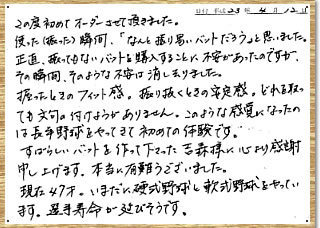 日付 平成23年4月12日
この度初めてオーダーさせて頂きました。
使った(振った)瞬間、「なんと振り易いバットだろう」と思いました。
正直、振ってもないバットを購入することに不安があったのですが、
その瞬間、そのような不安は消し去りました。
振ったときのフィット感。振り抜くときの安定感。どれを取っ
ても文句の付けようがありません。このような感覚になったの
は長年野球をやってきて初めての体験です。
すばらしいバットを作って下さった吉森様に心より感謝
申し上げます。本当に有難うございました。
現在47才。いまだに硬式野球と軟式野球をやってい
ます。選手寿命が延びそうです。